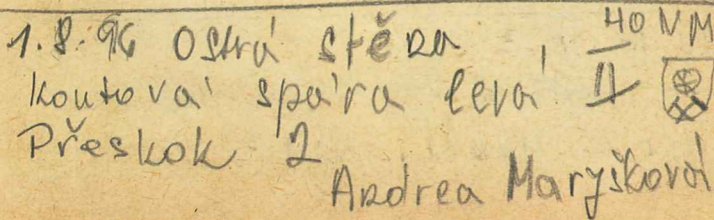 1.8.96 Ostrá stěna, 40 VM
koutová spára levá II
Přeskok 2
Andrea Maryšková